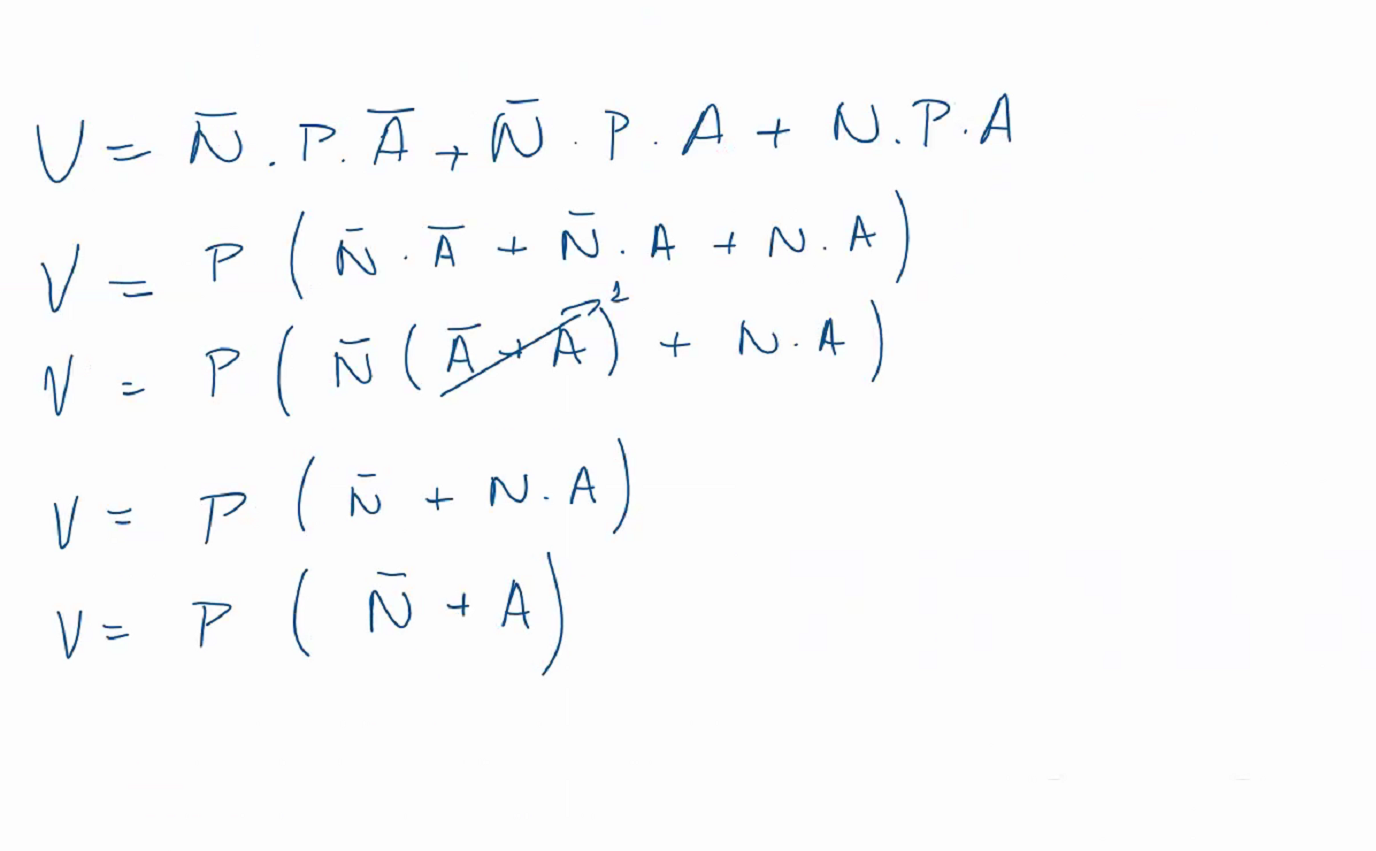 V = N̄ . P . Ā + N̄ . P . A + N . P . A
V = P ( N̄ . Ā + N̄ . A + N . A )
V = P ( N̄ ( Ā + Ā ) 1 + N . A )
V = P ( N̄ + N . A )
V = P ( N̄ + A )